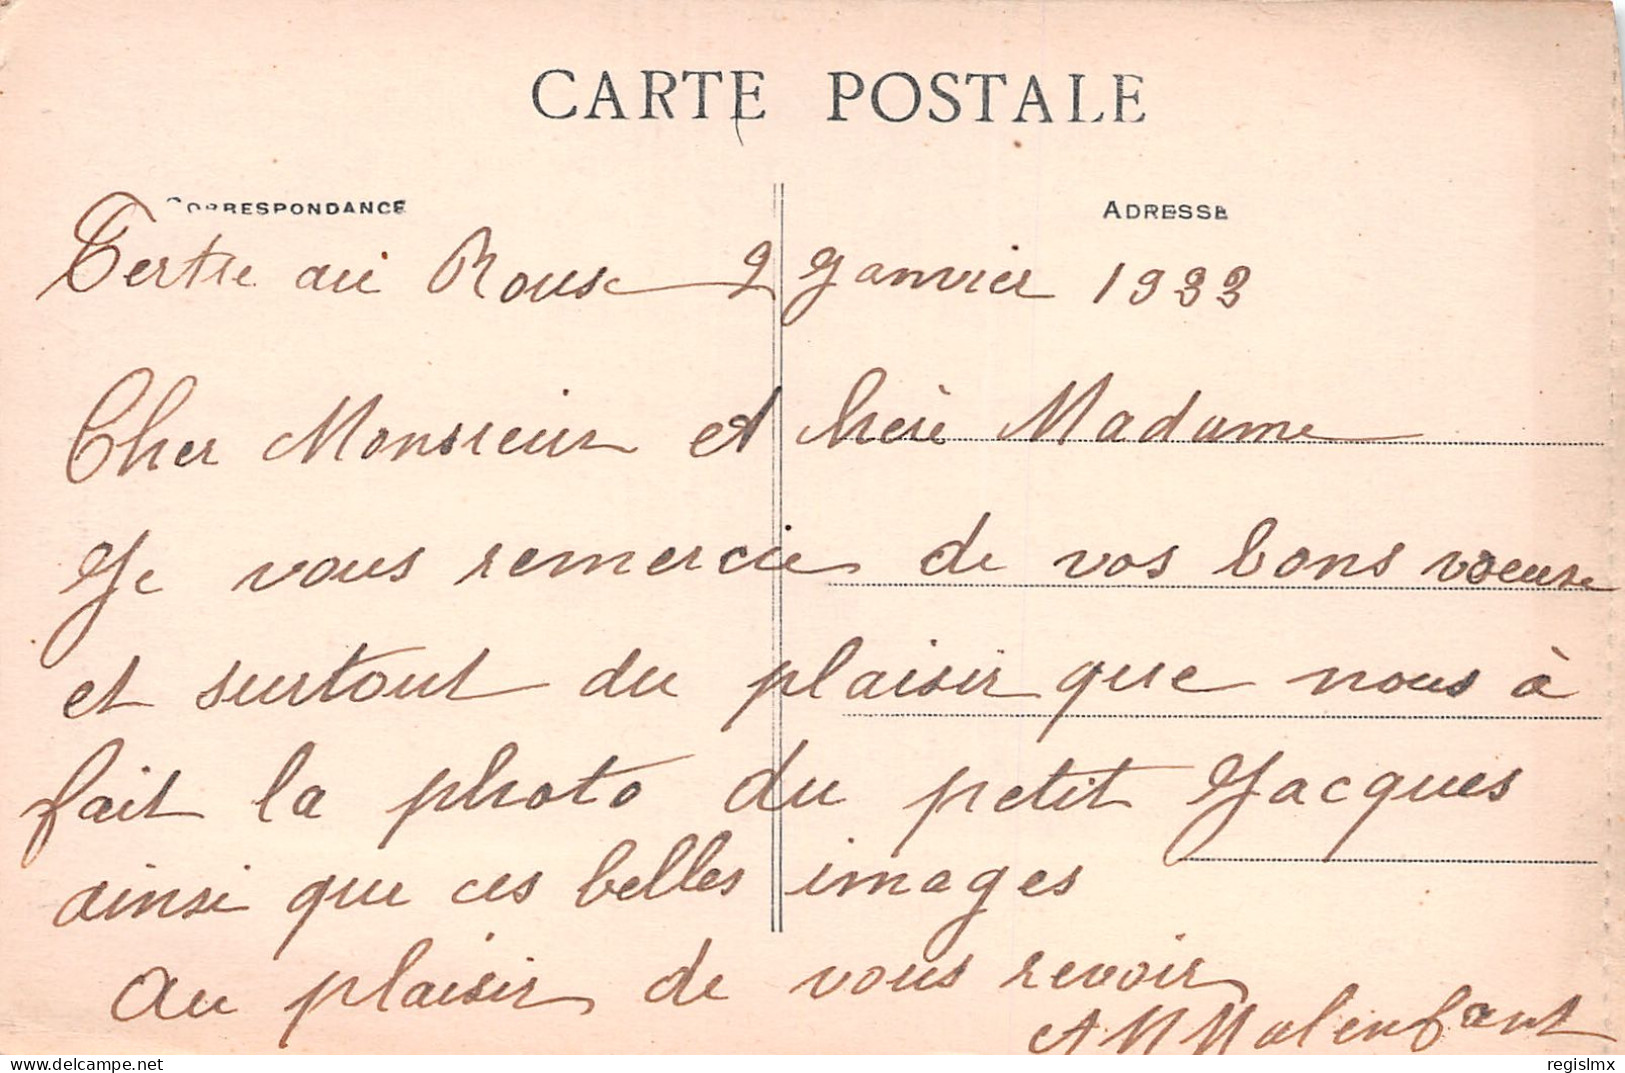 CARTE POSTALE
CORRESPONDANCE
ADRESSE
Tertre au 2 Janvier 1933
Cher Monsieur et chère Madame
Je vous remercie de vos bons voeuse
et surtout du plaisir que nous à
fait la photo du petit Jacques
ainsi que ces belles images
au plaisir de vous revoir
Malenfant
delcampe.net
regislmx